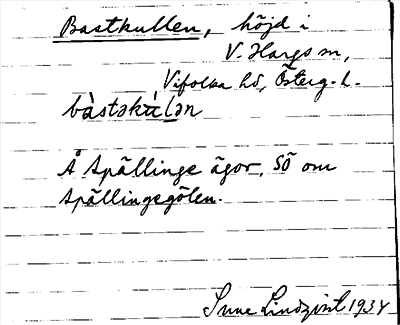 Bastkullen, höjd i
V. Hargs sn,
Vifolka hd, Österg. l.
bàstəkùlən
Å Spällinge ägor, SÖ om
Spällingegölen.
Sune Lindqvist 1934